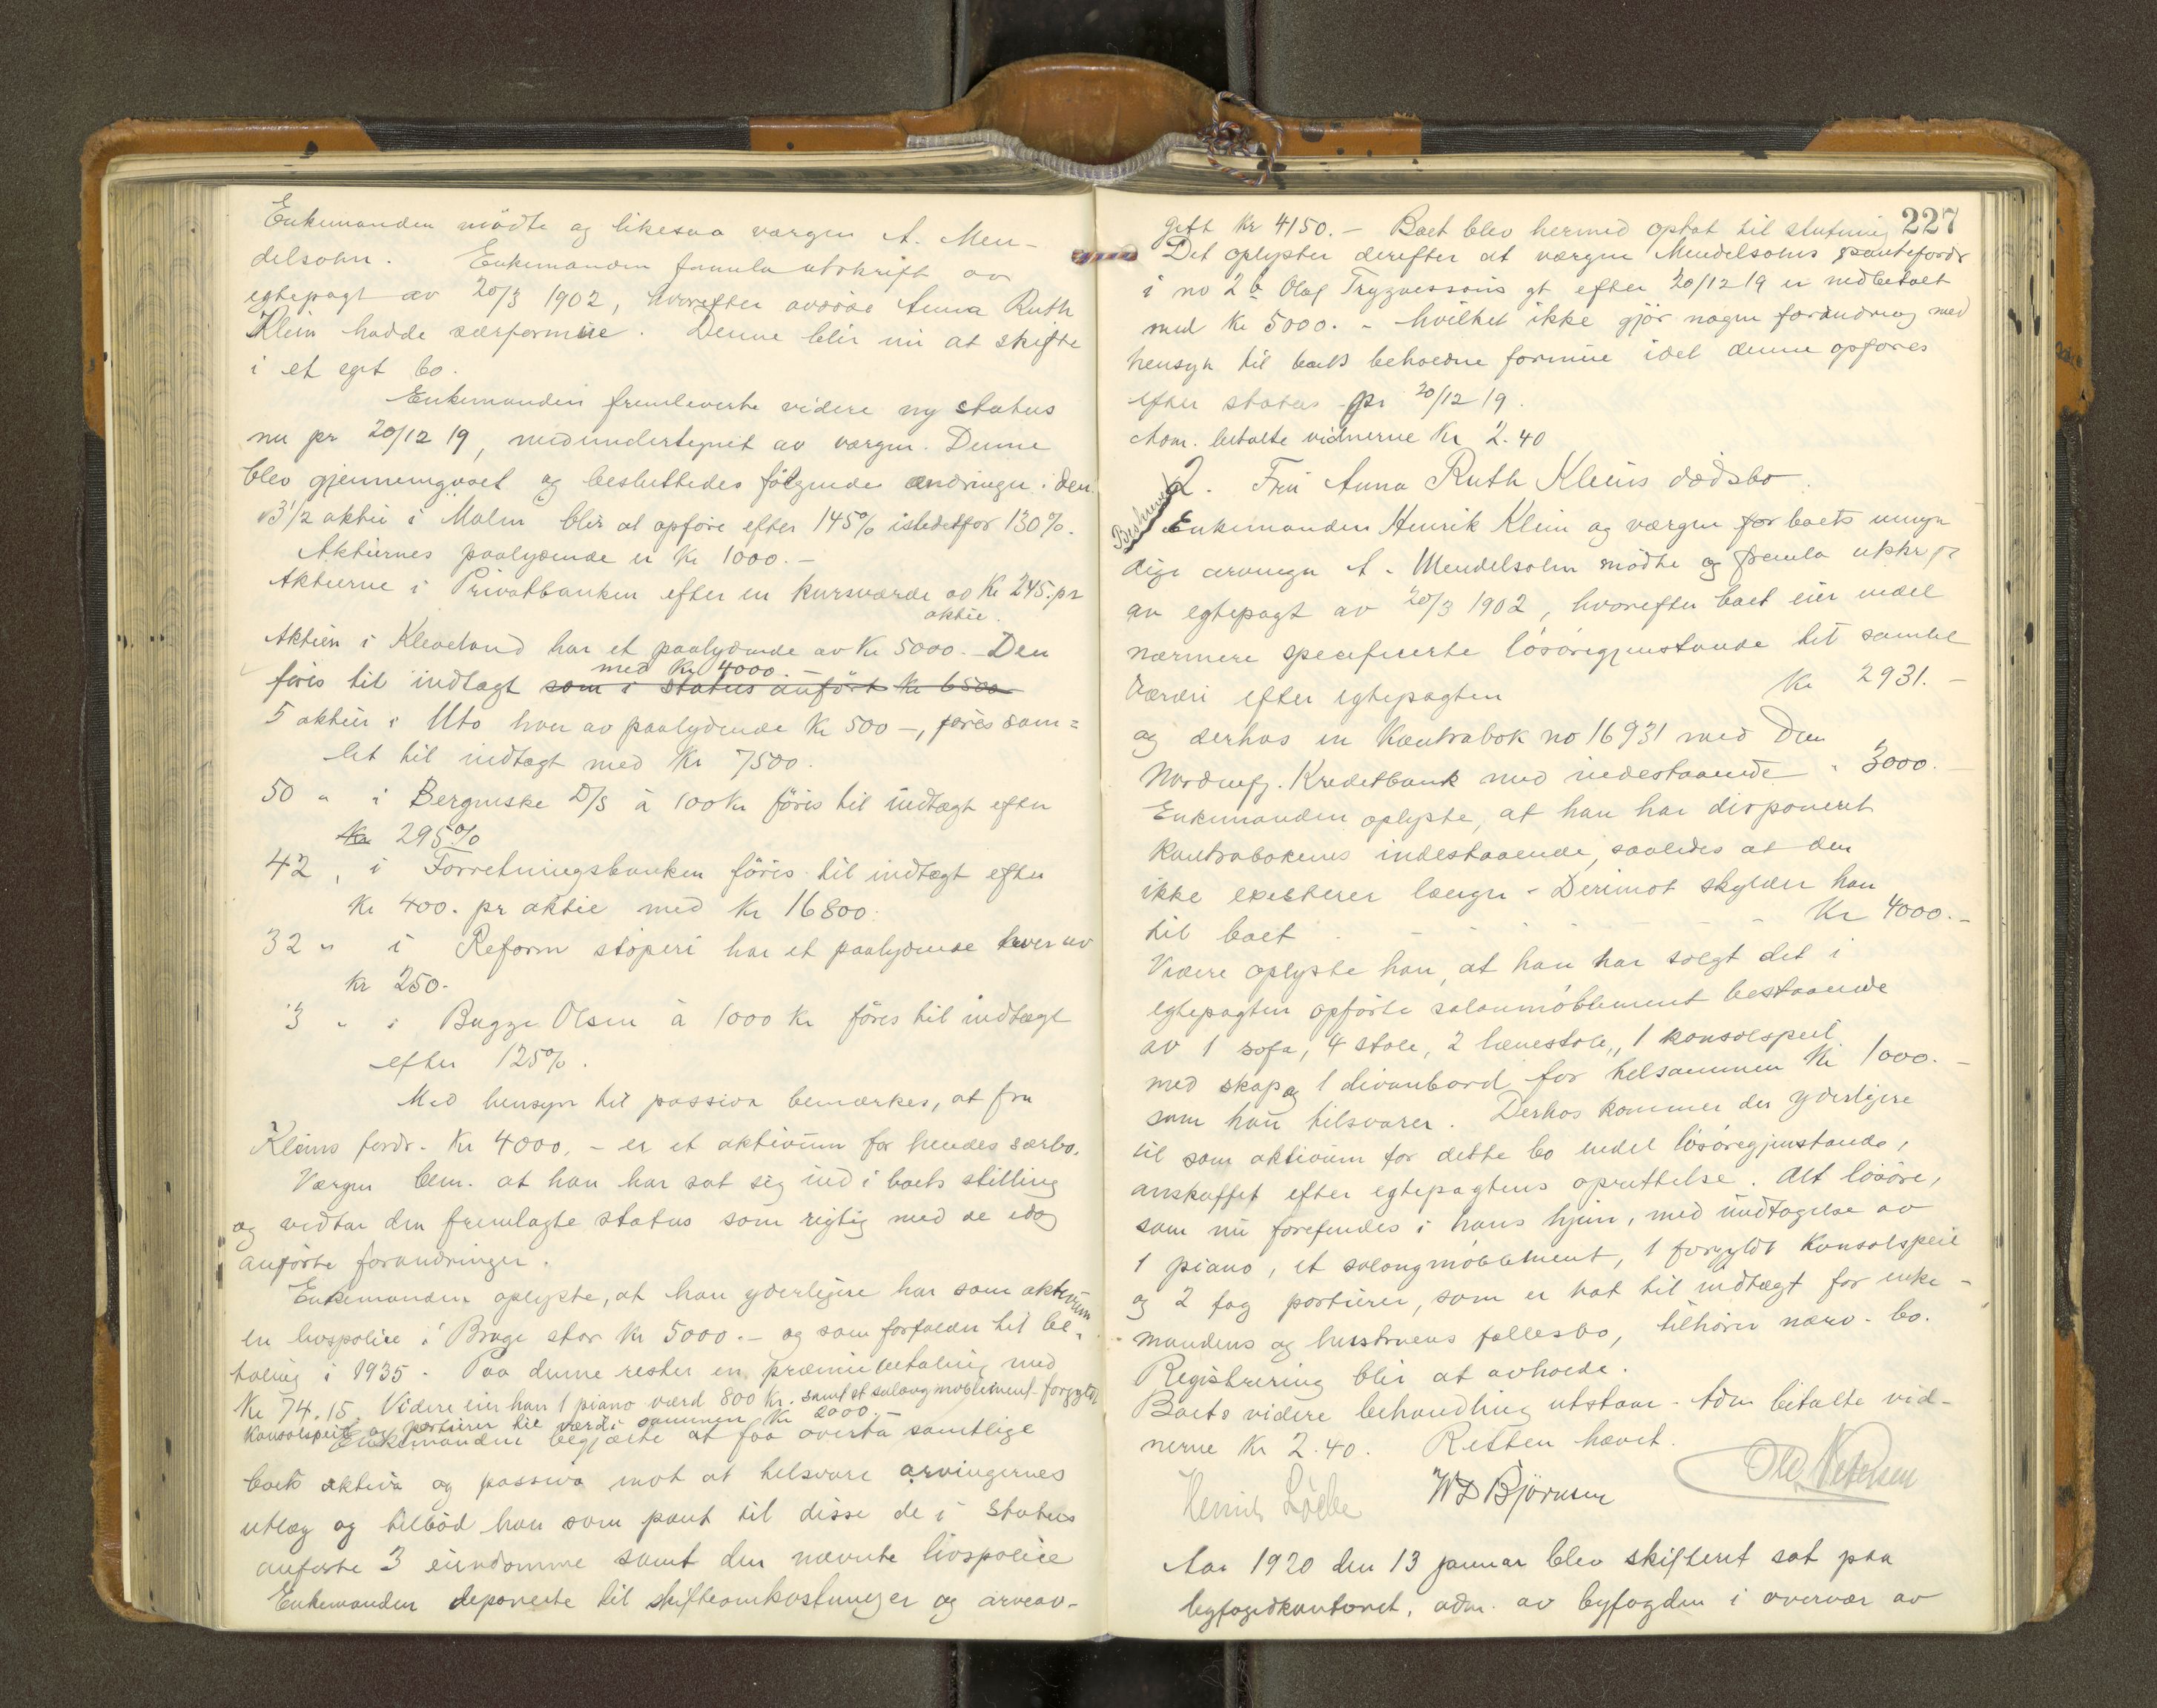 Enkemanden mödte og likesaa vergen A. Men-
delsohn. Enkemanden femla utskrift av
egtepagt av 20/3 1902, hvorefter avdöde Anna Ruth
Klein hadde særformue. Denne blir nu at skifte
i et eget bo.
Enkemanden fremleverte videre ny status
nu pr 20/12 19, medundertegnet av vergen. Denne
blev gjennemgaaet og besluttedes fölgende ændringer i den.
3 1/2 aktie i Malm blir at opföre efter 145% istedetfor 130%.
Aktiernes paalydende er Kr 1000.-
Aktierne i Privatbanken efter en kursværde av Kr 245. pr
aktie.
Aktien i Kleveland har et paalydende av Kr 5000.- Den
med Kr 4000.-
föres til indtægt som i status anfört Kr 6500
5 aktier i Uto hver av paalydende Kr 500 -, föres sam=
let til indtægt med Kr 7500.
50 " i Bergenske D/S à 100 Kr föres til indtægt efter
Kr 295%
42 " i Forretningsbanken föres til indtægt efter
Kr 400. pr aktie med Kr 16800.
32 " i Reform stöperi har et paalydende hver av
Kr 250.
3 " i Bugge Olsen à 1000 Kr föres til indtægt
efter 125%.
Med hensyn til passiva bemærkes, at fru
Kleins fordr. Kr 4000.- er et aktivum for hendes særbo.
Vergen bem. at han har sat sig ind i boets stilling
og vedtar den fremlagte status som rigtig med de idag
anförte forandringer.
Enkemanden oplyste, at han yderligere har som aktivum
en livspolice i Brage stor Kr 5000.- og som forfalder til be-
taling i 1935. Paa denne rester en præmiebetaling med
Kr 74.15. Videre eier han 1 piano værd 800 Kr. samt et salongmöblement forgyldt
konsolspeil og portierer til værdi sammen Kr 2000.-
Enkemanden begjærte at faa overta samtlige
boets aktiva og passiva mot at tilsvare arvingernes
utlæg og tilböd han som pant til disse de i status
anförte 3 eiendomme samt den nævnte livspolice
Enkemanden deponerte til skifteomkostninger og arveav-
227
gift Kr 4150.- Boet blev hermed optat til slutning
Det oplystes derefter at vergen Mendelsohns pantefordr
i no 2b Olaf Trygvessöns gt efter 20/12 19 er nedbetalt
med Kr 5000.- hvilket ikke gjör nogen forandring med
hensyn til boets beholdne formue idet denne opföres
efter status pr 20/12 19.
Adm. betalte vidnerne Kr 2.40
2. Fru Anna Ruth Kleins dödsbo.
Beskrevet
Enkemanden Henrik Klein og vergen for boets umyn
dige arvinger A. Mendelsohn mödte og femla utskr
av egtepagt av 20/3 1902, hvorefter boet eier endel
nærmere specificerte lösöregjenstande til samlet
værdi efter egtepagten Kr 2931.-
og derhos en Kontrabok no 16931 med Den
Nordenfj. Kreditbank med indestaaende " 3000.-
Enkemanden oplyste, at han har disponeret
Kontrabokens indestaaende, saaledes at den
ikke existerer længer - Derimot skylder han
til boet - - - - - Kr 4000.-
Videre oplyste han, at han har solgt det i
egtepagten opförte salonmöblement bestaaende
av 1 sofa, 4 stole, 2 lænestole, 1 konsolspeil
med skap og 1 divanbord for tilsammen Kr 1000.-
som han tilsvarer. Derhos kommer der yderligere
til som aktivum for dette bo endel lösöregjenstande,
anskaffet efter egtepagtens oprettelse. Alt lösöre,
som nu forefindes i hans hjem, med undtagelse av
1 piano, et salongmöblement, 1 forgyldt Konsolspeil
og 2 fag portierer, som er tat til indtægt for enke-
mandens og hustruens fællesbo, tilhörer nærv. bo.
Registrering blir at avholde.
Boets videre behandling utstaar - Adm betalte vid-
nerne Kr 2.40. Retten hævet.
W D Björnsen
Aar 1920 den 13 januar blev skifteret sat paa
byfogedkontoret, adm. av byfogden i overvær av